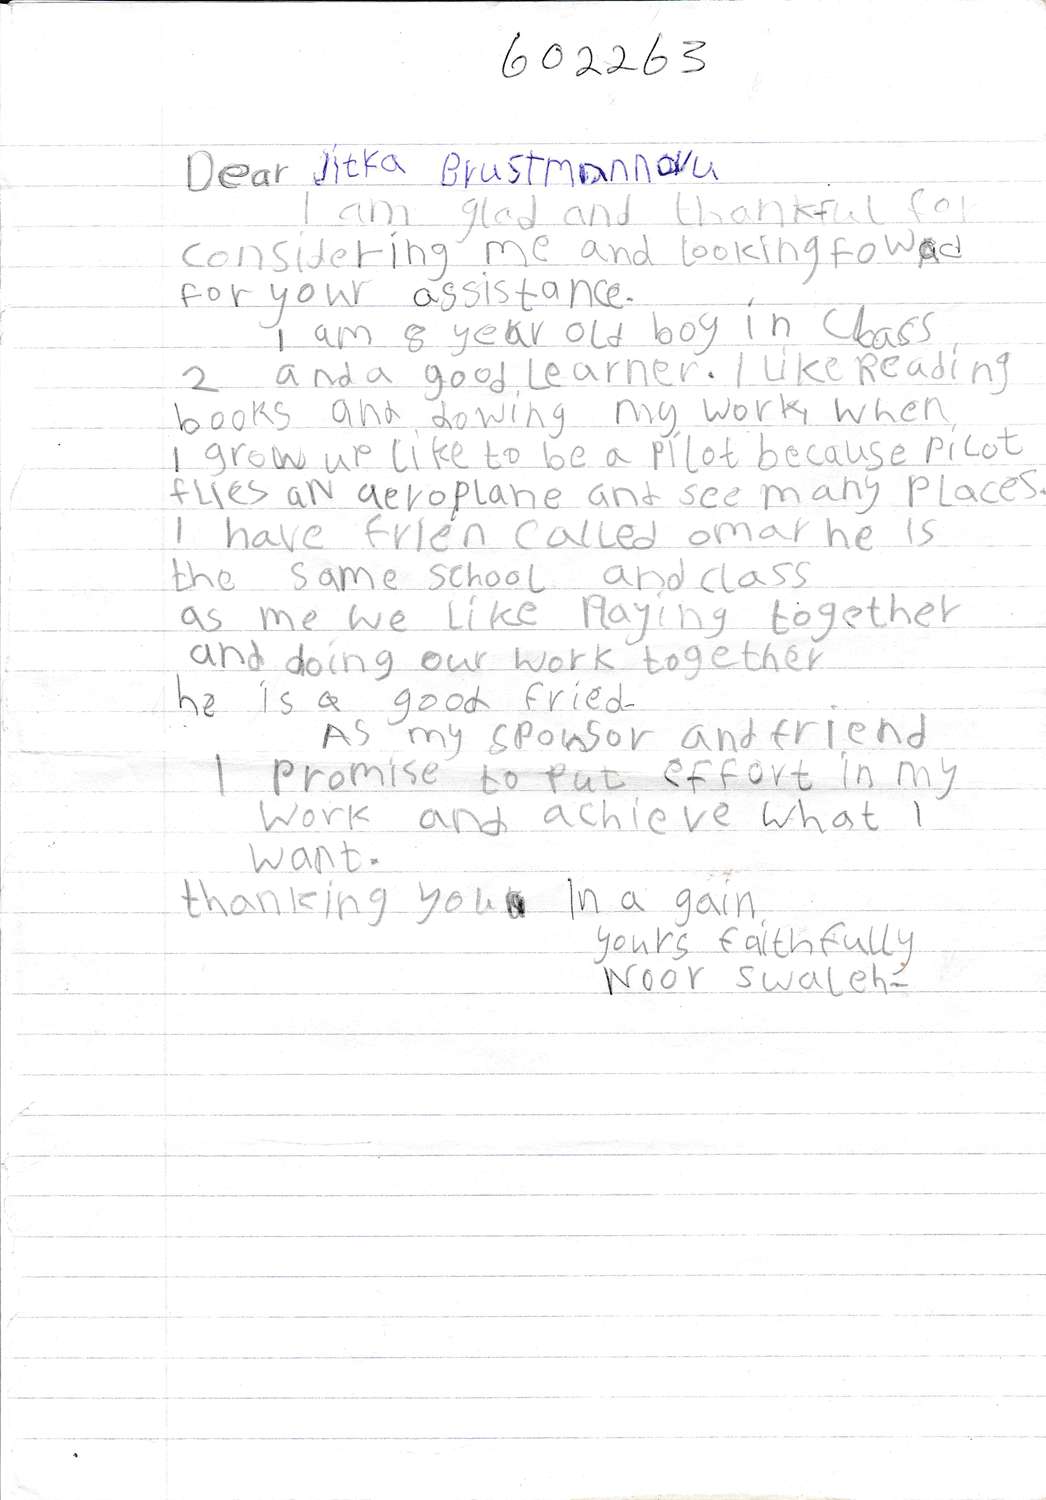 602263
Dear Jitka Brustmannovu
I am glad and thankful for
considering me and looking foward
for your assistance.
I am 8 year old boy in Class
2 and a good Learner. I Like Reading
books and dowing my work, when
I grow up like to be a pilot because pilot
flies an aeroplane and see many places.
I have frien called omar he is
the same school and class
as me we like playing together
and doing our work together
he is a good fried
As my sponsor and friend
I promise to put effort in my
work and achieve what I
want.
thanking you In a gain
yours faithfully
Noor Swaleh